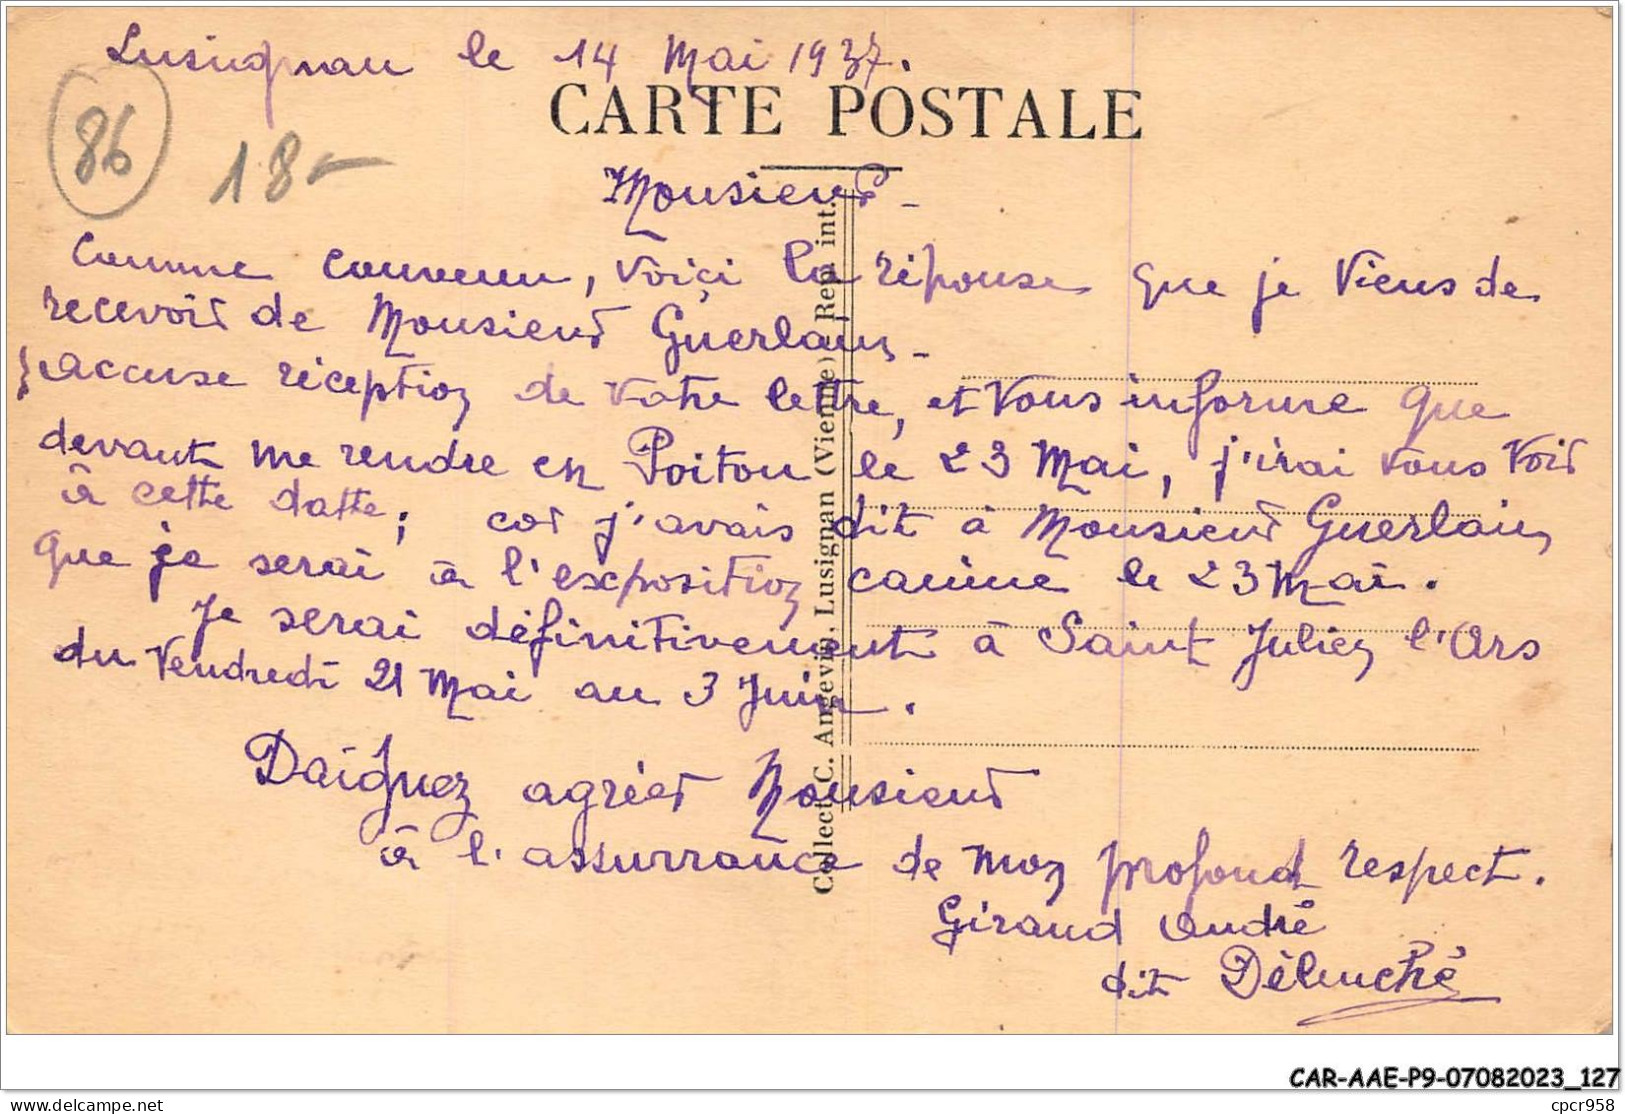 Lusignan le 14 Mai 1937.
CARTE POSTALE
86
18-
Monsieur -
Comme convenu, voiçi la réponse que je viens de
recevoir de Monsieur Guerlain -
J'accuse réception de votre lettre, et vous informe que
devant me rendre en Poitou le 23 Mai, j'irai vous voir
à cette datte; car j'avais dit à Monsieur Guerlain
que je serai à l'exposition canine le 23 Mai.
Je serai définitivement à Saint Julien l'Ars
du Vendredi 21 Mai au 3 Juin.
Daignez agréer Monsieur
à l'assurrance de mon profond respect.
Giraud André
dit Déluché
Collect. C. Angevin, Lusignan (Vienne) - Rep. int.
CAR-AAE-P9-07082023_127
www.delcampe.net
cpcr958